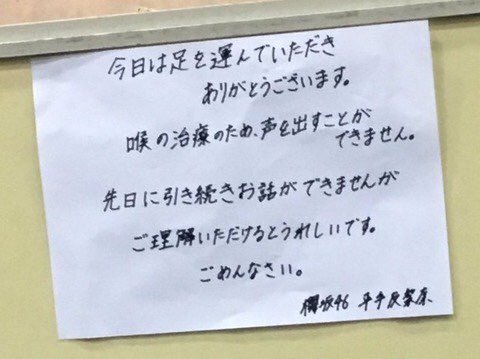 今日は足を運んでいただき
ありがとうございます。
喉の治療のため、声を出すことが
できません。
先日に引き続きお話ができませんが
ご理解いただけるとうれしいです。
ごめんなさい。
欅坂46 平手友梨奈